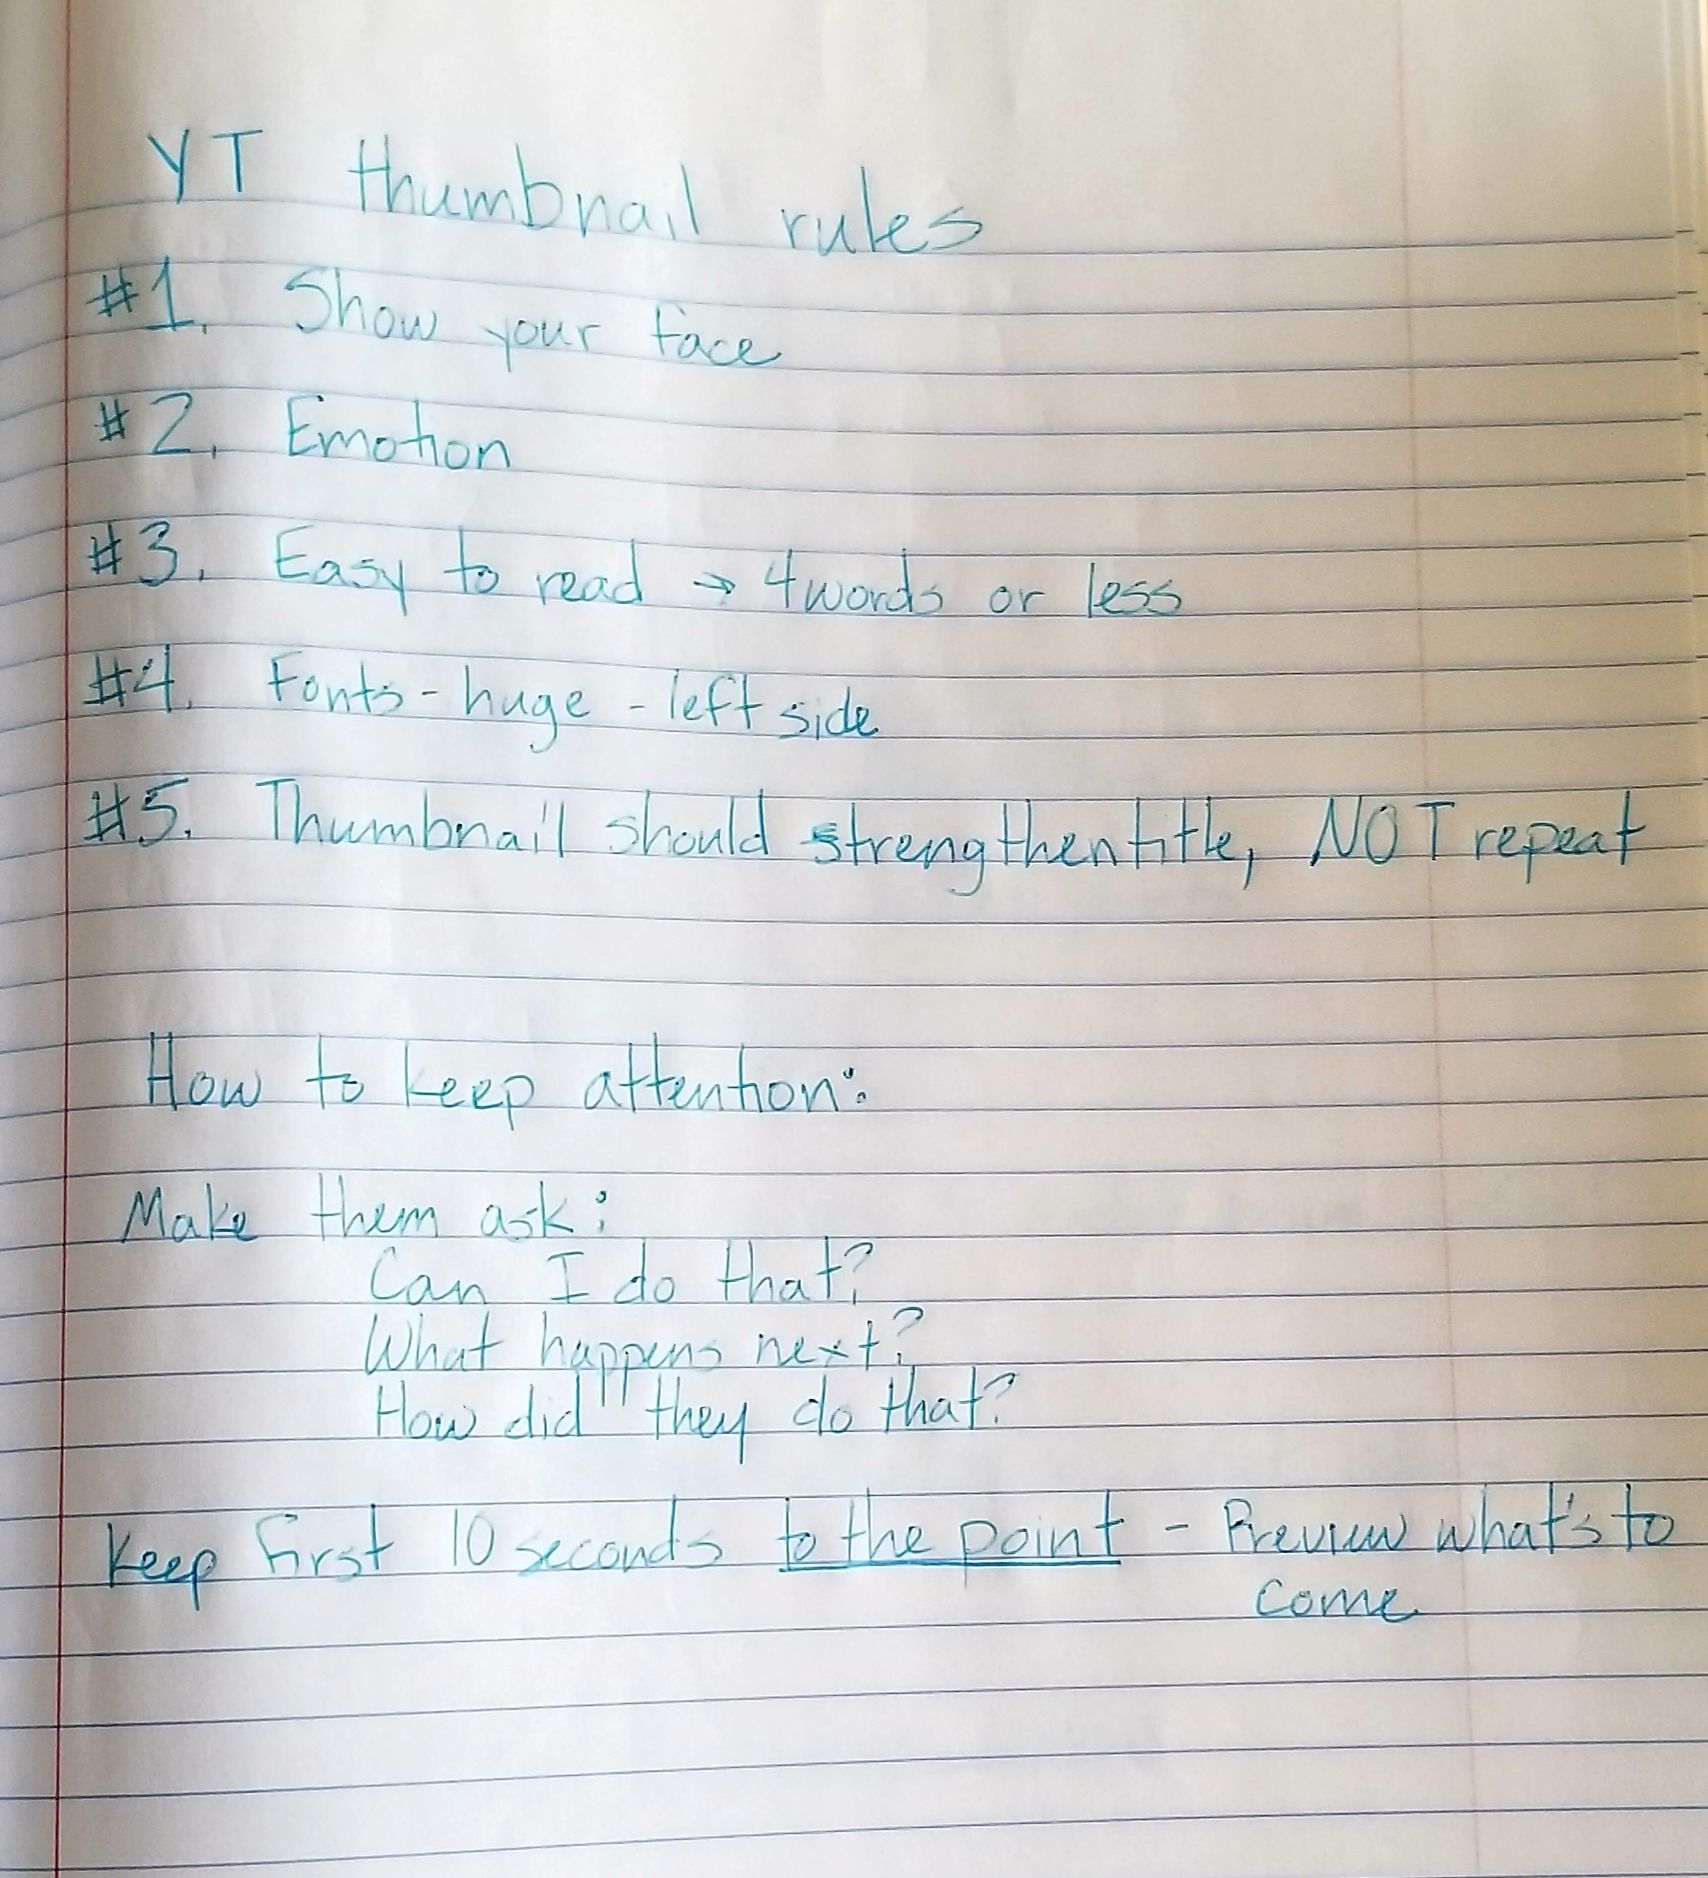 YT thumbnail rules
#1. Show your face
#2. Emotion
#3. Easy to read → 4 words or less
#4. Fonts - huge - left side
#5. Thumbnail should strengthen title, NOT repeat
How to keep attention:
Make them ask:
Can I do that?
What happens next?
How did they do that?
Keep first 10 seconds to the point - Preview what's to
come